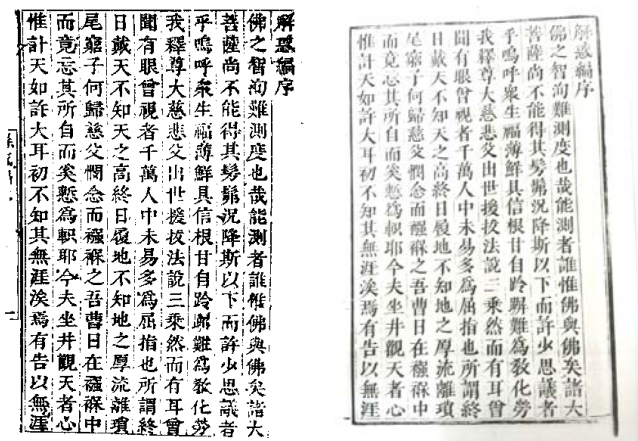 解惑編序
佛之智洵難測度也哉能測者誰惟佛與佛矣諸大
菩薩尚不能得其髣髴況降斯以下而許少思議者
乎嗚呼衆生福薄鮮具信根甘自跉竮難爲敎化勞
我釋尊大慈悲父出世援拔法說三乘然而有耳曾
聞有眼曾視者千萬人中未易多爲屈指也所謂終
日戴天不知天之高終日履地不知地之厚流離瑣
尾窮子何歸慈父憫念而襁褓之吾曹日在襁褓中
而竟忘其所自而矣慙爲軹耶今夫坐井觀天者心
惟計天如許大耳初不知其無涯涘焉有告以無涯
解惑編序
佛之智洵難測度也哉能測者誰惟佛與佛矣諸大
菩薩尚不能得其髣髴況降斯以下而許少思議者
乎嗚呼衆生福薄鮮具信根甘自跉竮難爲敎化勞
我釋尊大慈悲父出世援拔法說三乘然而有耳曾
聞有眼曾視者千萬人中未易多爲屈指也所謂終
日戴天不知天之高終日履地不知地之厚流離瑣
尾窮子何歸慈父憫念而襁褓之吾曹日在襁褓中
而竟忘其所自而矣慙爲軹耶今夫坐井觀天者心
惟計天如許大耳初不知其無涯涘焉有告以無涯